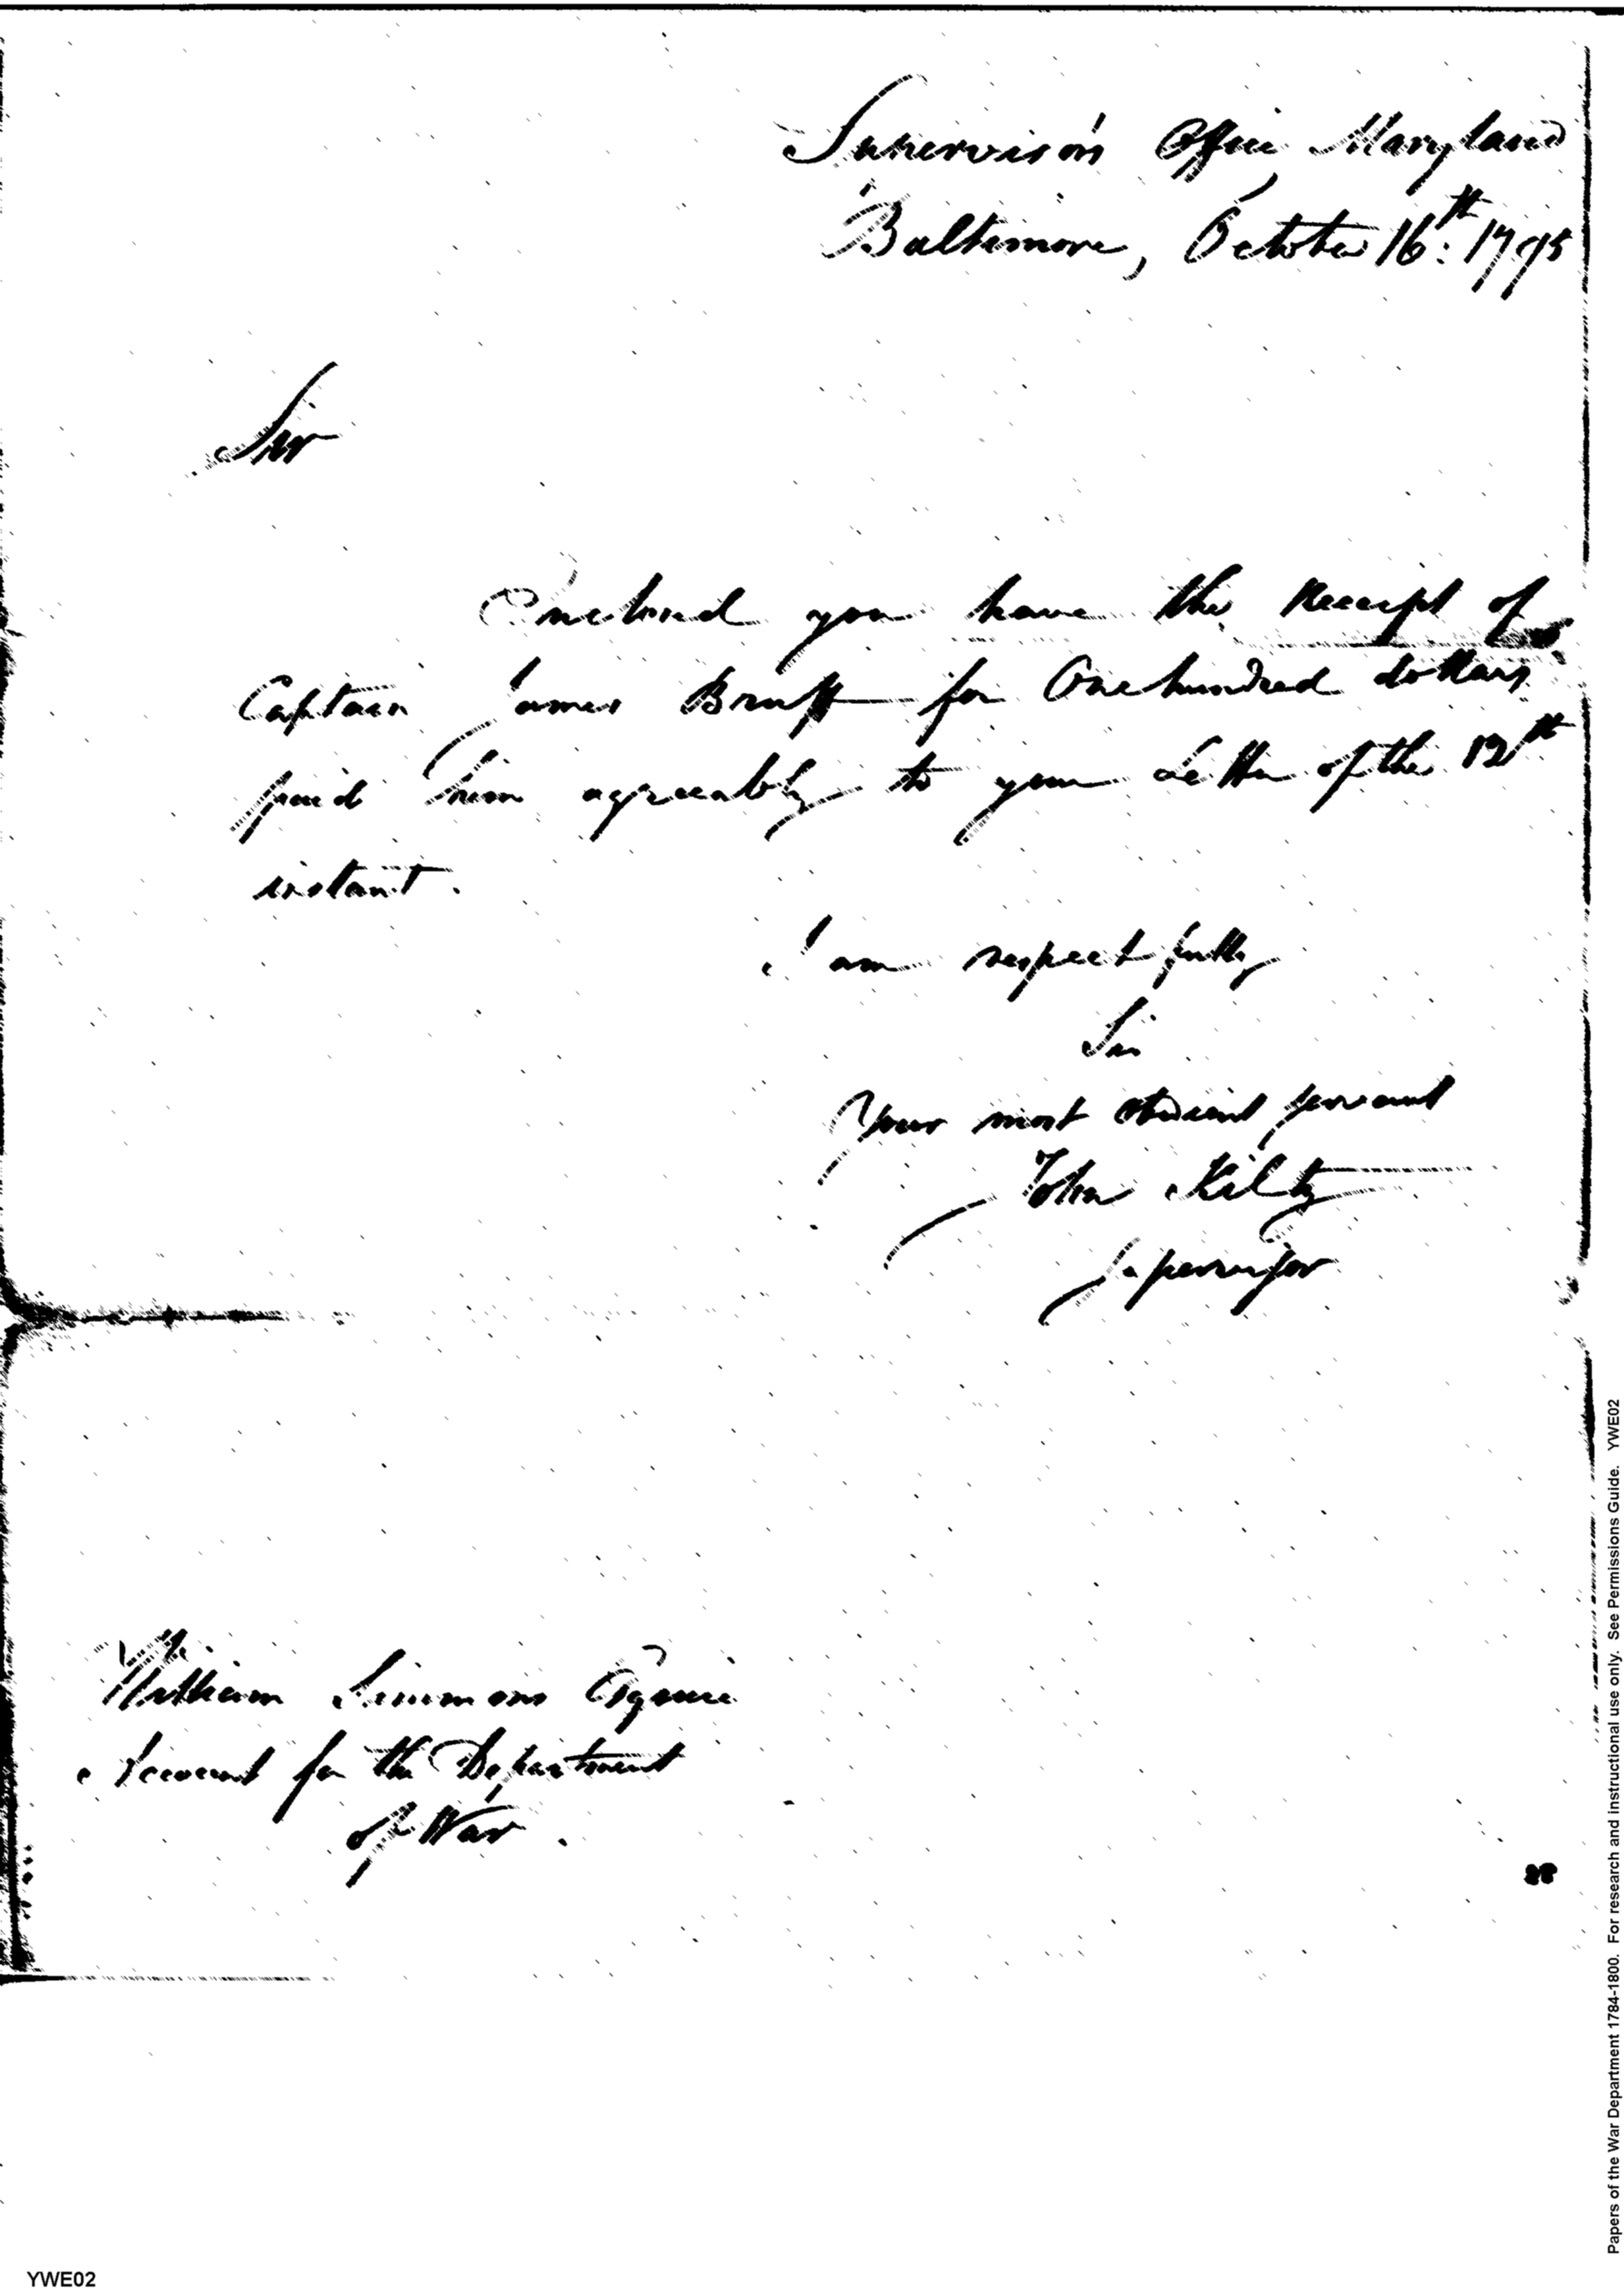 Supervisor's Office, Maryland
Baltimore, October 16th: 1795
Sir
Enclosed you have the Receipt of
Captain James Bruff for One hundred dollars
paid him agreeably to your Letter of the 12th
instant.
I am respectfully
Sir
Your most obedient servant
John Kilty
Supervisor
William Simmons Esquire
Account for the Department
of War.
Papers of the War Department 1784-1800. For research and instructional use only. See Permissions Guide. YWE02
YWE02